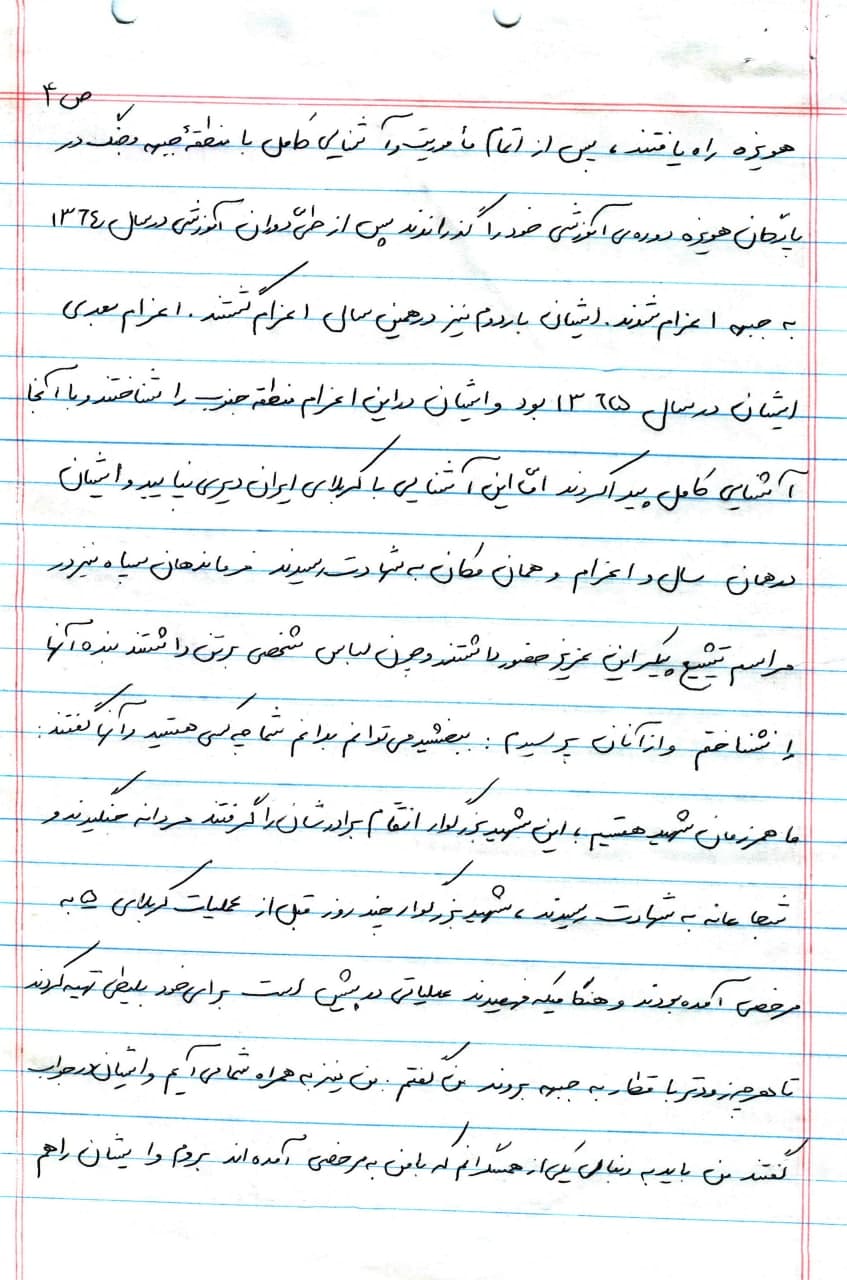 ص ۴
هویزه راه یافتند، پس از اتمام مأموریت و آشنایی کامل با منطقهٔ جبهه و جنگ در
پادگان هویزه دوره‌ی آموزشی خود را گذراندند پس از طیّ دوران آموزشی در سال ۱۳۶۴
به جبهه اعزام شدند. ایشان بار دوم نیز در همین سال اعزام گشتند. اعزام بعدی
ایشان در سال ۱۳۶۵ بود و ایشان در این اعزام منطقه جنوب را شناختند و با آنجا
آشنایی کامل پیدا کردند امّا این آشنایی با کربلای ایران دیری نپایید و ایشان
در همان سال و اعزام و همان مکان به شهادت رسیدند فرماندهان سپاه نیز در
مراسم تشییع پیکر این عزیز حضور داشتند و چون لباس شخصی برتن داشتند بنده آنها
را نشناختم و از آنان پرسیدم: ببخشید می‌توانم بدانم شما چه کسی هستید و آنها گفتند:
ما همرزمان شهید هستیم، این شهید بزرگوار انتقام برادرشان را گرفتند مردانه جنگیدند و
شجاعانه به شهادت رسیدند، شهید بزرگوار چند روز قبل از عملیات کربلای ۵ به
مرخصی آمده بودند و هنگامیکه فهمیدند عملیاتی در پیش است برای خود بلیطی تهیه کردند
تا هر چه زودتر با قطار به جبهه بروند من گفتم. من نیز به همراه شما می‌آیم و ایشان در جواب
گفتند من باید به دنبال یکی از همسنگرانم که با من به مرخصی آمده‌اند بروم و ایشان را هم